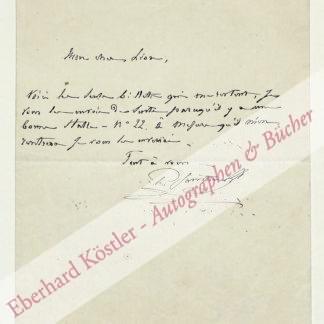 Mon cher Lion,
Voici les seuls billets qui me restent. Je
vous les envoie de suite parcequ'il y a une
bonne Stalle - N° 22. à mesure qu'ils
rentreront je vous les
Tout à vous
Eberhard Köstler - Autographen & Bücher